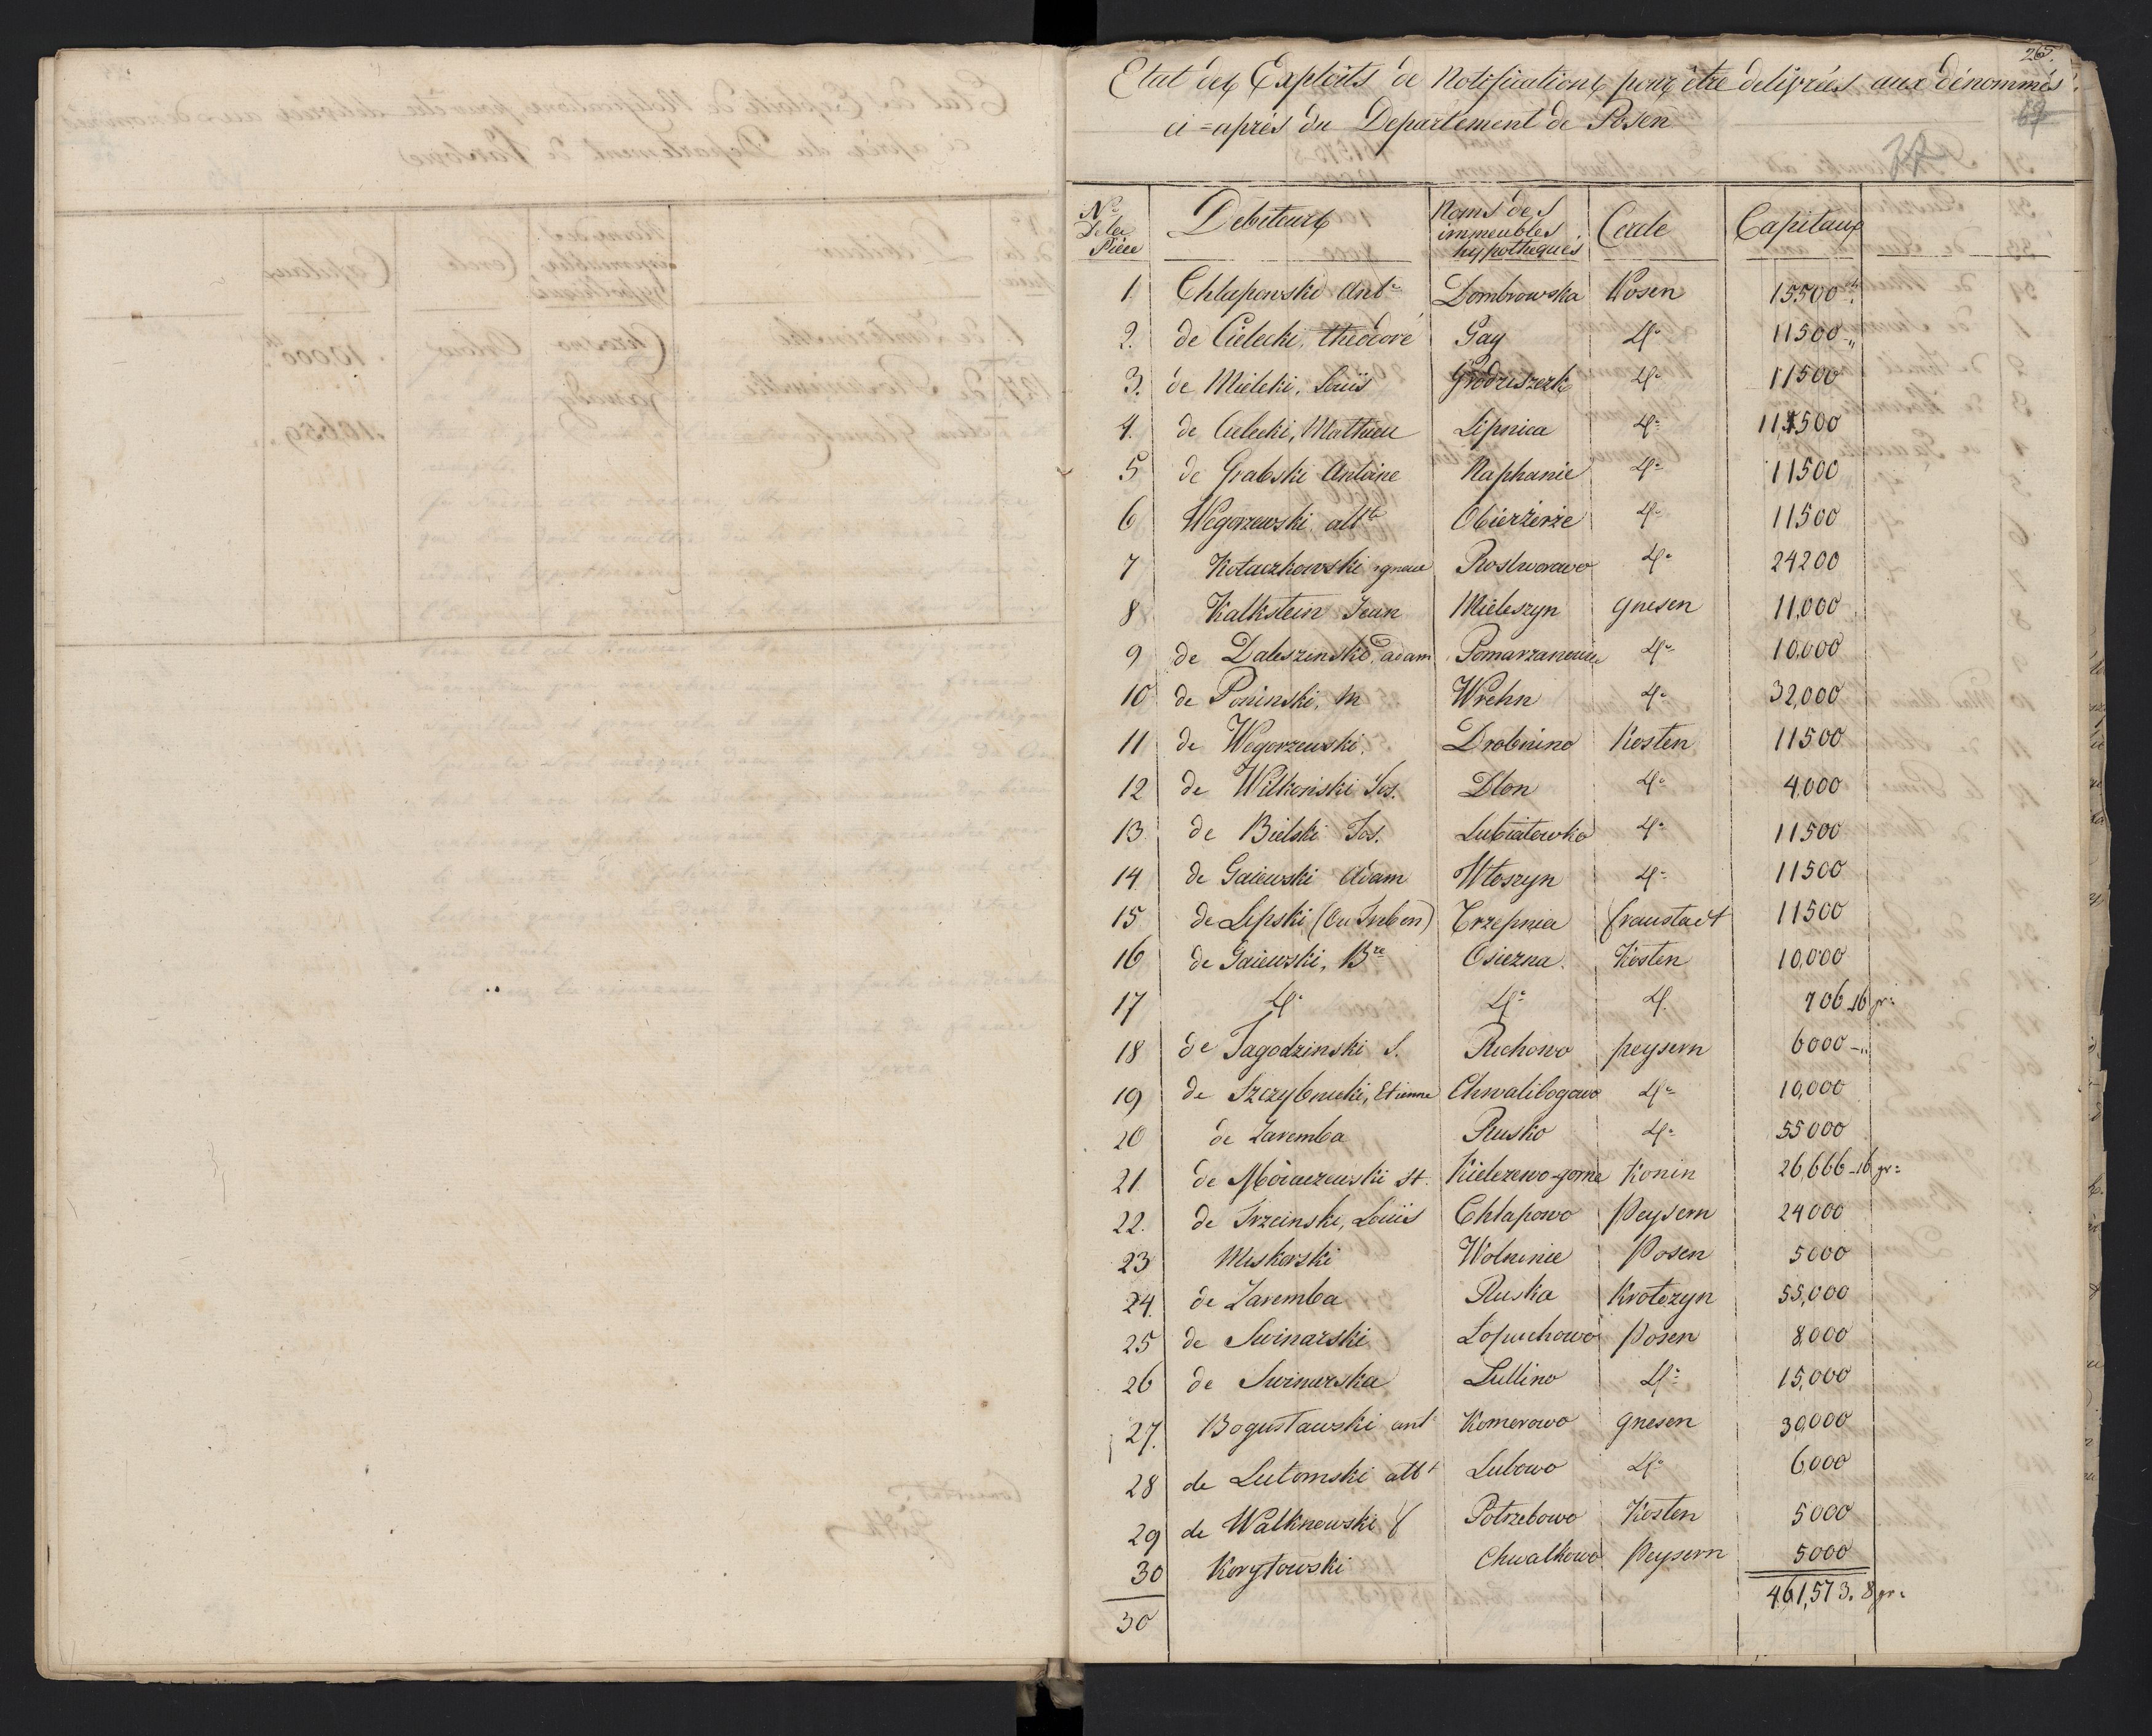 265.
Etat des Exploits de Notifications pour être delivrées aux dénommés
ci=après du Departement de Posen
69
No. de la Pièce Debiteurs Noms des immeubles hypothequés Cercle Capitaux
1 Chlapowski Ant. Dombrowska Posen 15500 "
2. de Cielecki, théodore Gay do 11500 - "
3. de Mielcki, Louis Grodziszczk do 11500
4. de Cielecki, Mathieu Lipnica do 11,500
5 de Grabski Antoine Raphanie do 11500
6 Wegorzewski albt Obierzierze do 11500
7 Kolaczkowski ignace Rostworowo do 24200
8 Kalkstein Jean Mieleszyn gnesen 11,000
9 de Daleszinski, adam Pomarzanowice do 10,000
10 de Poninski, m Wrehn do 32,000
11 de Wegorzewski. Drobnino Kosten 11500
12 de Wilkonski Jos. Dlon do 4,000
13 de Bielski Jos. Lubiatowko do 11500
14 de Gaiewski Adam Wloszyn do 11500
15 de Lipski (Ou Luben) Trzepnia fraustadt 11500
16 de Gaiewski, Bre Osiezna. Kosten 10,000
17 do do do 706_16 gr:
18 de Jagodzinski S. Ruchowo peysern 6000 - "
19 de Szczybnicki, Etienne Chwalibogowo do 10,000
20 de Zaremba Rusko do 55000
21 de Moraczewski St. Kielczewo-gorne Konin 26,666_16 gr:
22. de Trzcinski, Louis Chlapowo Peysern 24000
23 Miskorski Wolninie Posen 5000
24. de Zaremba Ruska Krotozyn 55,000
25 de Swinarski Lopuchowo Posen 8,000
26 de Swinarska Lullino do 15,000
27. Boguslawski ant Komorowo gnesen 30,000
28 de Lutomski albt Lubowo do 6,000
29 de Walknowski Potrzebowo Kosten 5000
30 Korytowski Chwalkowo Peysern 5000
30 461,573. 8 gr: